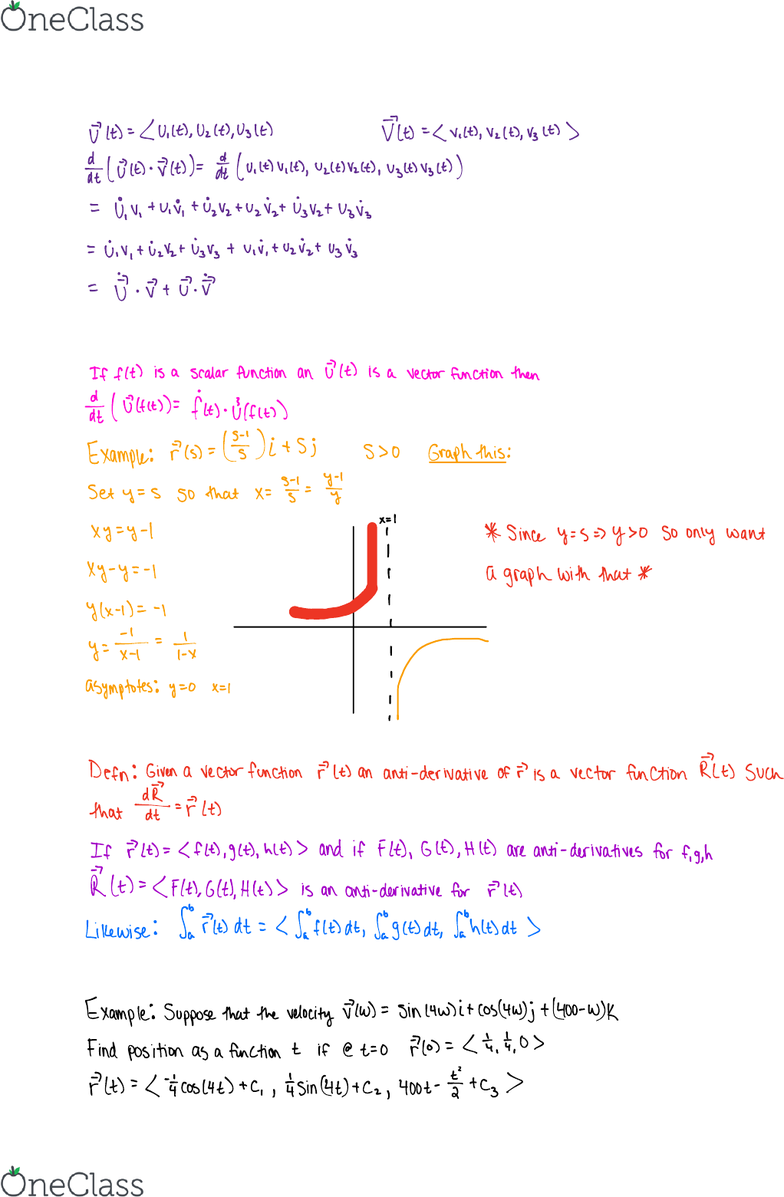 OneClass
U⃗(t) = < U₁(t), U₂(t), U₃(t) V⃗(t) = < V₁(t), V₂(t), V₃(t) >
d/dt (U⃗(t)·V⃗(t)) = d/dt (U₁(t)V₁(t), U₂(t)V₂(t), U₃(t)V₃(t))
= U̇₁V₁ + U₁V̇₁ + U̇₂V₂ + U₂V̇₂ + U̇₃V₂ + U₃V̇₃
= U̇₁V₁ + U̇₂V₂ + U̇₃V₃ + U₁V̇₁ + U₂V̇₂ + U₃V̇₃
= U⃗̇ · V⃗ + U⃗ · V⃗̇
If f(t) is a scalar function an U⃗(t) is a vector function then
d/dt (U⃗(f(t)) = ḟ(t) · U⃗̇(f(t))
Example: r⃗(s) = (s-1/s)i + sj s>0 Graph this:
Set y=s so that x= s-1/s = y-1/y
x=1
xy=y-1
* Since y=s => y>0 so only want
xy-y=-1
a graph with that *
y(x-1)=-1
y= -1/x-1 = 1/1-x
asymptotes: y=0 x=1
Defn: Given a vector function r⃗(t) an anti-derivative of r⃗ is a vector function R⃗(t) such
that dR⃗/dt = r⃗(t)
If r⃗(t) = < f(t), g(t), h(t) > and if F(t), G(t), H(t) are anti-derivatives for f,g,h
R⃗(t) = < F(t), G(t), H(t) > is an anti-derivative for r⃗(t)
Likewise: ∫ₐᵇ r⃗(t) dt = < ∫ₐᵇ f(t) dt, ∫ₐᵇ g(t) dt, ∫ₐᵇ h(t) dt >
Example: Suppose that the velocity v⃗(w) = sin(4w)i + cos(4w)j + (400-w)K
Find position as a function t if @ t=0 r⃗(0) = < 1/4, 1/4, 0 >
r⃗(t) = < -1/4 cos(4t) + C₁, 1/4 sin(4t) + C₂, 400t - t²/2 + C₃ >
OneClass